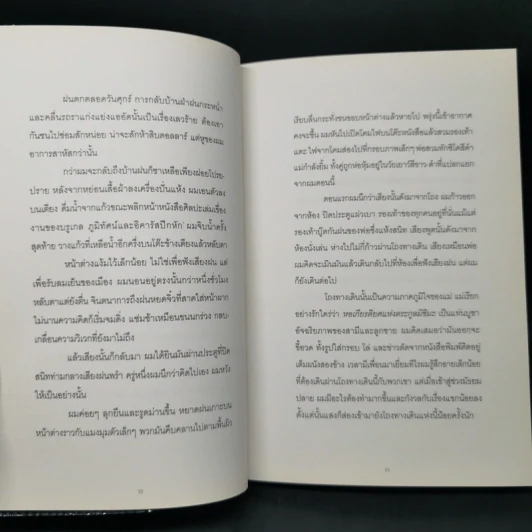 ฝนตกตลอดวันศุกร์ การกลับบ้านฝ่าฝนกระหน่ำ
และคลื่นรถราแก่งแย่งแออัดนั้นเป็นเรื่องเลวร้าย ต้องเอา
กันชนไปซ่อมสักหน่อย น่าจะสักห้าสิบดอลลาร์ แต่หูของผม
อาการสาหัสกว่านั้น
กว่าผมจะกลับถึงบ้านฝนก็ซาเหลือเพียงฝอยโปรย
ปราย หลังจากหย่อนเสื้อผ้าลงเครื่องปั่นแห้ง ผมเอนตัวลง
บนเตียง ดื่มน้ำจากแก้วขณะพลิกหน้าหนังสือศิลปะเล่มเรื่อง
งานของบรูเกล ภูมิทัศน์และอิคารัสปีกหัก ผมจิบน้ำครั้ง
สุดท้าย วางแก้วที่เหลือน้ำอีกครึ่งบนโต๊ะข้างเตียงแล้วหลับตา
หน้าต่างแง้มไว้เล็กน้อย ไม่ใช่เพื่อฟังเสียงฝน แต่
เพื่อรับลมเย็นของเมือง ผมนอนอยู่ตรงนั้นกว่าหนึ่งชั่วโมง
หลับตาแต่ยังตื่น จินตนาการถึงฝนหยดจิ๋วที่สาดใส่หน้าผาก
ไม่นานความคิดก็เริ่มจมดิ่ง แช่มช้าเหมือนขนนกร่วง กลบ
เกลื่อนความวิเวกที่ยังมาไม่ถึง
แล้วเสียงนั้นก็กลับมา ผมได้ยินมันผ่านประตูที่ปิด
สนิทท่ามกลางเสียงฝนพรำ ครู่หนึ่งผมนึกว่าคิดไปเอง ผมหวัง
ให้เป็นอย่างนั้น
ผมค่อยๆ ลุกยืนและรูดม่านขึ้น หยาดฝนเกาะบน
หน้าต่างราวกับแมงมุมตัวเล็กๆ พวกมันคืบคลานไปตามพื้นผิว
10
เรียบลื่นกระทั่งชนขอบหน้าต่างแล้วหายไป พรุ่งนี้เช้าอากาศ
คงจะชื้น ผมหันไปเปิดโคมไฟบนโต๊ะหนังสือแล้วสวมรองเท้า
แตะ ไฟจากโคมส่องไปที่กรอบภาพเล็กๆ พ่อสวมทักซิโดสีดำ
แม่กำลังยิ้ม ทั้งคู่ถูกห่อหุ้มอยู่ในวัยเยาว์สีขาว-ดำที่แปลกแยก
จากผมตอนนี้
ตอนแรกผมนึกว่าเสียงนั้นดังมาจากโถง ผมก้าวออก
จากห้อง ปิดประตูแผ่วเบา รองเท้าของทุกคนอยู่ที่นั่นแม้แต่
รองเท้าบู๊ตกันฝนของพ่อซึ่งแห้งสนิท เสียงพูดนั้นดังมาจาก
ห้องนั่งเล่น ห่างไปไม่กี่ก้าวผ่านโถงทางเดิน เสียงเหมือนพ่อ
ผมคิดจะเมินมันแล้วเดินกลับไปที่ห้องเพื่อฟังเสียงฝน แต่ผม
ก็ยังเดินต่อไป
โถงทางเดินนั้นเป็นความภาคภูมิใจของแม่ แม่เรียก
อย่างรักใคร่ว่า หอเกียรติยศแห่งตระกูลมัชิมะ เป็นแท่นบูชา
อัจฉริยภาพของสามีและลูกชาย ผมคิดเสมอว่ามันออกจะ
ขี้อวด ทั้งรูปใส่กรอบ โล่ และข่าวตัดจากหนังสือพิมพ์ติดอยู่
เต็มผนังสองข้าง เวลามีเพื่อนมาเยี่ยมทีไรผมรู้สึกอายเล็กน้อย
ที่ต้องเดินผ่านโถงทางเดินนี้กับพวกเขา แต่เมื่อเข้าสู่ช่วงมัธยม
ปลาย ผมมีอะไรต้องทำมากขึ้นและกังวลกับเรื่องแขกน้อยลง
ตั้งแต่นั้นแสงก็ส่องเข้ามายังโถงทางเดินแห่งนี้น้อยครั้งนัก
11